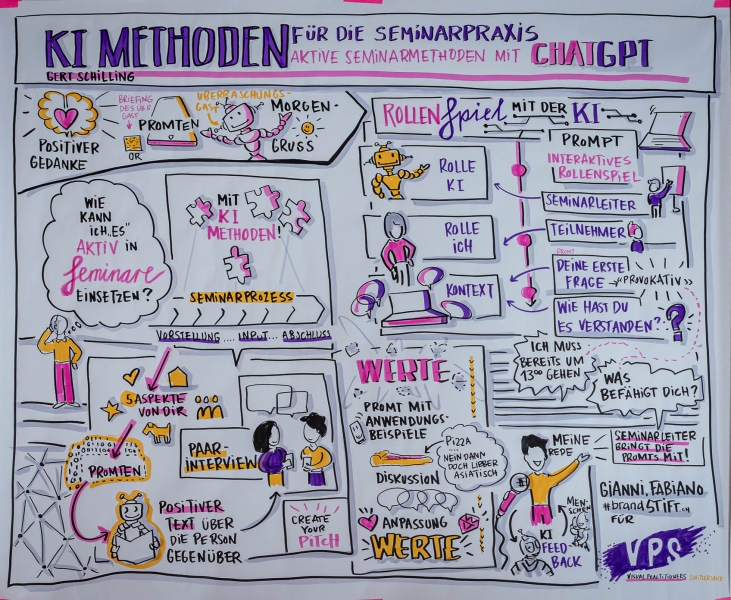 KI METHODEN FÜR DIE SEMINARPRAXIS
AKTIVE SEMINARMETHODEN MIT CHATGPT
GERT SCHILLING
POSITIVER
GEDANKE
BRIEFING
GAST
OR
PROMTEN
ÜBERRASCHUNGS-
GAST
MORGEN-
GRUSS
WIE
KANN
ICH „ES"
AKTIV IN
Seminare
EINSETZEN?
MIT
KI
METHODEN!
SEMINARPROZESS
VORSTELLUNG .... INPUT ... ABSCHLUSS
5 ASPEKTE
VON DIR
PROMTEN
POSITIVER
TEXT ÜBER
DIE PERSON
GEGENÜBER
PAAR-
INTERVIEW
CREATE
YOUR
PITCH
ROLLENSpiel MIT DER KI
ROLLE
KI
ROLLE
ICH
KONTEXT
PROMPT
INTERAKTIVES
ROLLENSPIEL
SEMINARLEITER
TEILNEHMER
DEINE ERSTE
FRAGE → "PROVOKATIV"
WIE HAST DU
ES VERSTANDEN?
?
ICH MUSS
BEREITS UM
13⁰⁰ GEHEN
WAS
BEFÄHIGT DICH?
WERTE
PROMPT MIT
ANWENDUNGS-
BEISPIELE
PIZZA
... NEIN DANN
DOCH LIEBER
ASIATISCH
DISKUSSION
ANPASSUNG
WERTE
MEINE
REDE
MEN-
SCHEN
KI
FEED-
BACK
SEMINARLEITER
BRINGT DIE
PROMTS MIT!
GIANNI, FABIANO
#brandSTIFT.ch
FÜR
VPS
VISUAL PRACTITIONERS SWITZERLAND